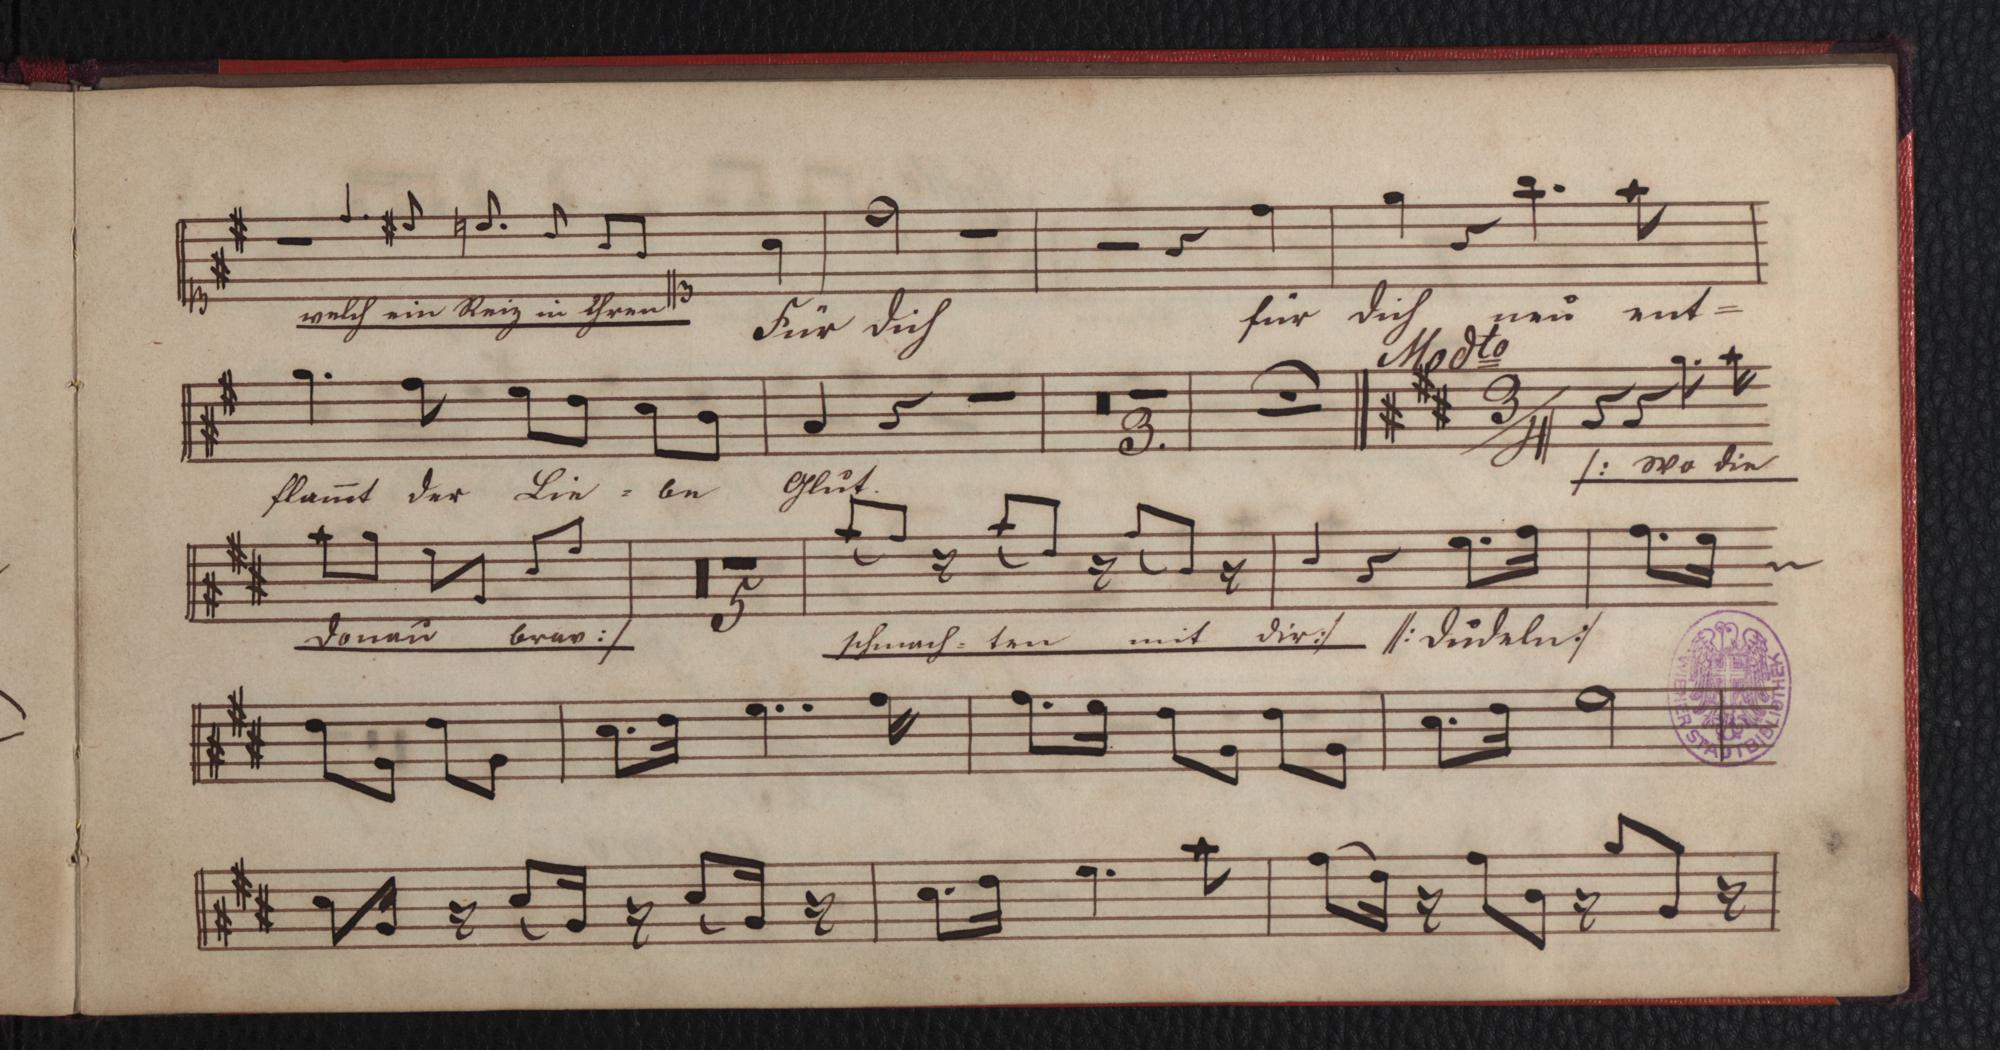 welch ein Reiz in Ihren Für dich für dich neu ent=
Modto
3/4
3.
flam̄t der Lie = be Glut. /: Wo die
5
Donau brav :/ schmach = ten mit dir :/ /: Dudeln :/
WIENER STADTBIBLIOTHEK